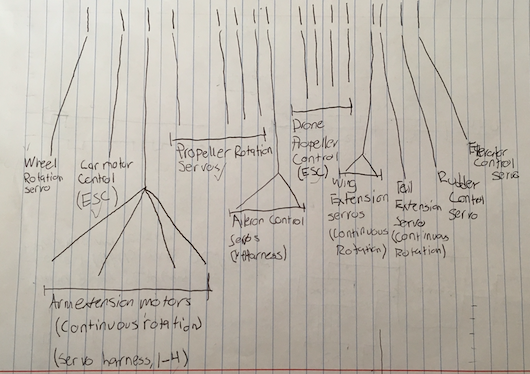 Wheel
Rotation
servo
Car motor
Control
(ESC)
Propeller Rotation
Servos
Aileron Control
servos
(Y Harness)
Drone
Propeller
Control
(ESC)
Wing
Extension
servos
(Continuous
Rotation)
Tail
Extension
Servo
(Continuous
Rotation)
Rudder
Control
Servo
Elevator
Control Servo
Arm extension motors
(Continuous rotation)
(servo harness, 1-4)